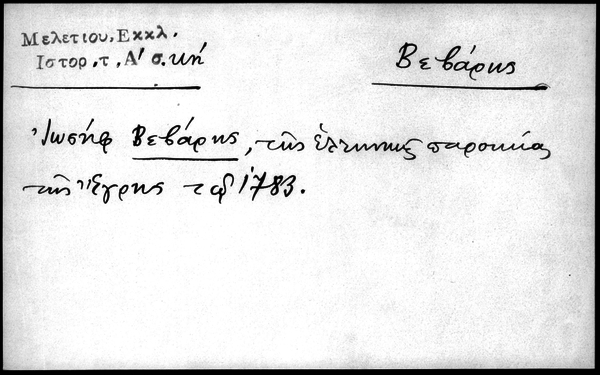 Μελετιου, Εκκλ.
Ιστορ, τ, Α' σ. κή
Βεβάρης
Ἰωσήφ Βεβάρης, τῆς ἑλληνικῆς παροικίας
τῆς Ἔγρης τῷ 1783.